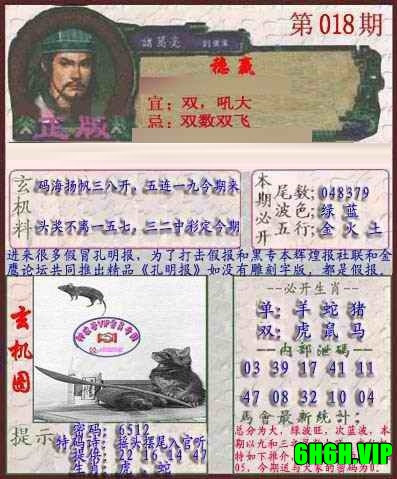 第018期
諸葛亮
稳赢
宜：双，吼大
忌：双数双飞
正版
玄机料
码海扬帆三八开，五连一九今期来
头奖不离一五七，三二中彩定今期
本期必开
尾数：048379
波色：绿 蓝
五行：金 火 土
进来很多假冒孔明报，为了打击假报和黑专本辉煌报社联和金
鹰论坛共同推出精品《孔明报》如没有雕刻字版，都是假报。
玄机图
--必开生肖--
单：羊 蛇 猪
双：虎 鼠 马
--内部泄码--
03 39 17 41 11
47 08 32 10 04
马會最新统计：
总分为大，绿波旺，次蓝波，本
期以九和三
特如下推介
05，今期送与大家的密码为0。
提示
密码：6512
特码诗：接头摆尾入官听
提供：22 16 14 47
生肖：虎 蛇
6HGH.VIP